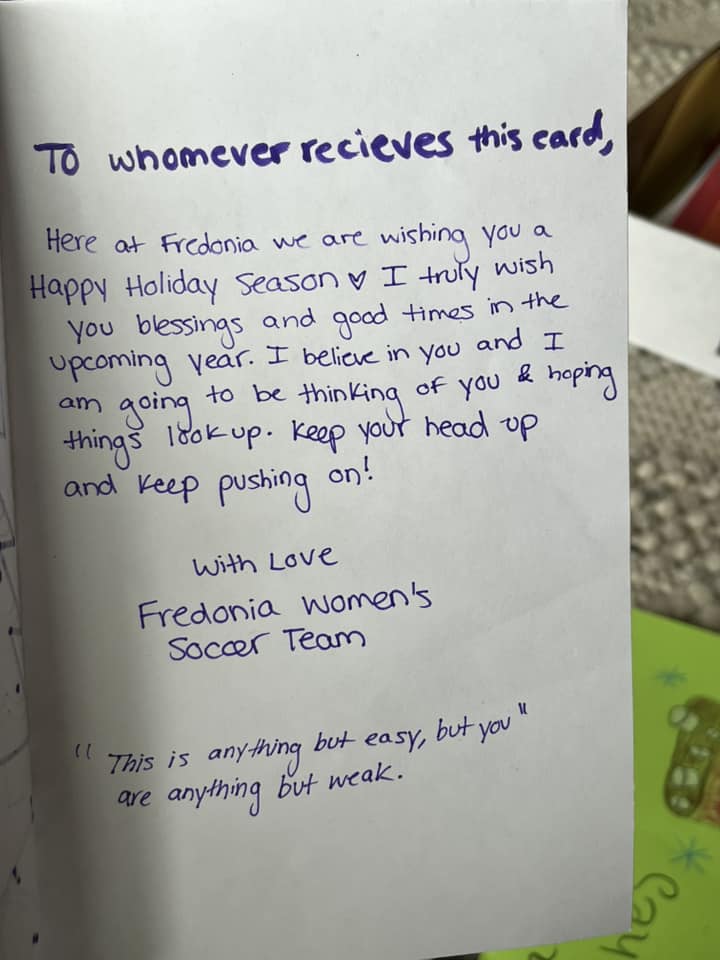 To whomever recieves this card,
Here at Fredonia we are wishing you a
Happy Holiday Season ♥ I truly wish
you blessings and good times in the
upcoming year. I believe in you and I
am going to be thinking of you & hoping
things look up. Keep your head up
and keep pushing on!
With Love
Fredonia Women's
Soccer Team
"This is anything but easy, but you"
are anything but weak.